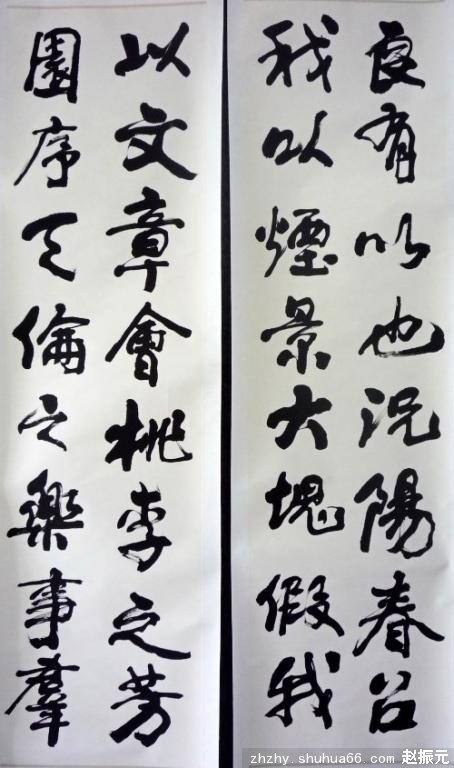 良有以也况陽春召
我以煙景大塊假我
以文章會桃李之芳
園序天倫之樂事羣
zhzhy.shuhua66.com 赵振元